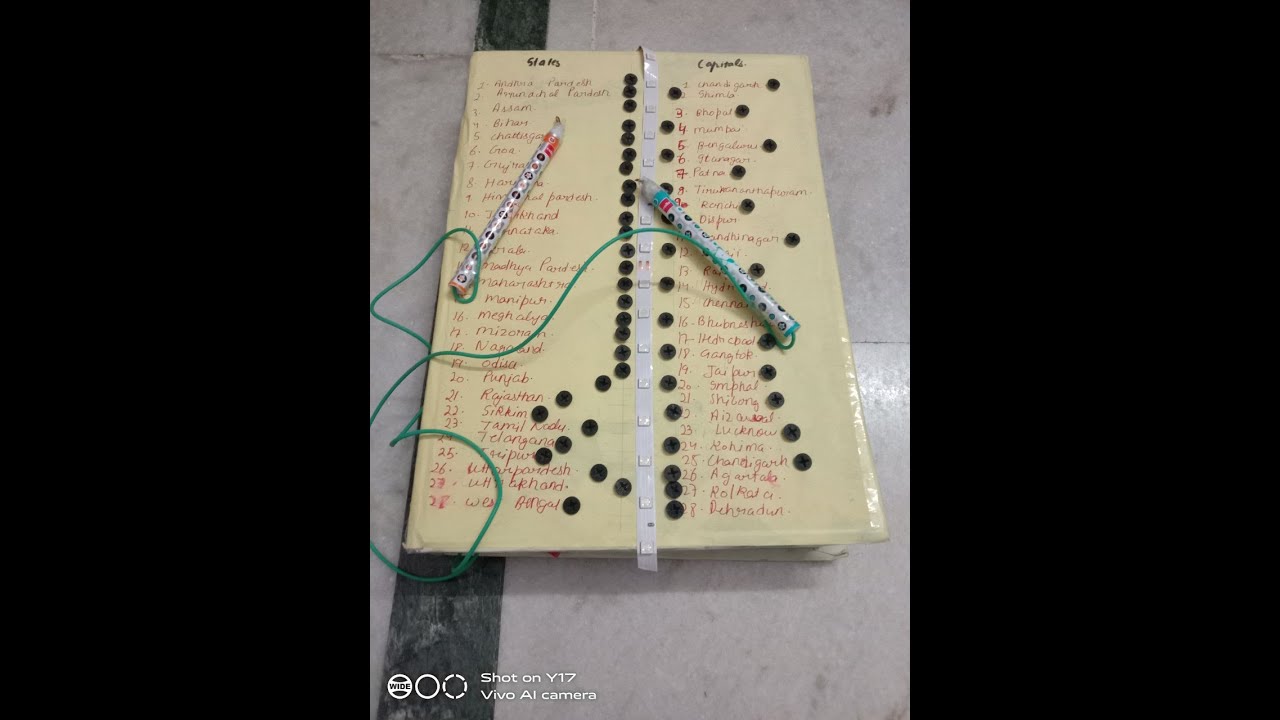 States
1. Andhra Pardesh
2. Arrunachal Pardesh
3. Assam
4. Bihar
5. Chattisga
6. Goa
7. Gujra
8. Har na
9. Him hal pardesh.
10. J khand
rnataka
12. rala
madhya Pardesh.
maharashtra
manipur.
16. meghalya
17. Mizoram
18. Nagaland.
19. Odisa
20. Punjab.
21. Rajasthan
22. Sikkim
23. Tamil Nadu.
Telangana
25. Tripur
26. Utharpardesh.
27. Uttrakhand.
28. West Bengal
Capitals.
1. Chandigarh
Shimla
3. Bhopal
4. mumbai
5. Bengaluru
6. Itanagar
7. Patna
8. Tirukananthapuram.
Ranchi
Dispur
andhinagar
12.
13. Rai
14. Hyd d
15. Chennai
16. Bhubnesh
17.
18. Gangtok
19. Jaipur
20. Imphal
21. Shilong
Aizawal
23. Lucknow
24. Kohima.
25. Chandigarh
26. Agartala
27. Kolkata
28. Dehradun.
WIDE
Shot on Y17
Vivo AI camera